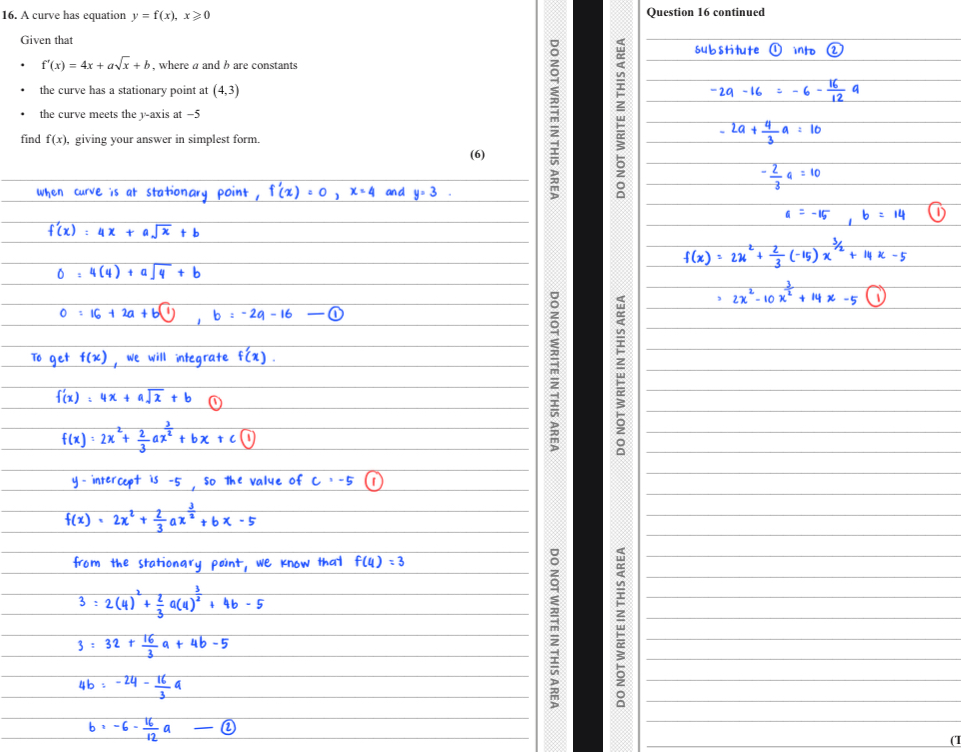 16. A curve has equation y = f(x), x ⩾ 0
Given that
• f′(x) = 4x + a√x + b, where a and b are constants
• the curve has a stationary point at (4,3)
• the curve meets the y-axis at −5
find f(x), giving your answer in simplest form.
(6)
when curve is at stationary point, f′(x) = 0, x=4 and y=3.
f′(x) = 4x + a√x + b
0 = 4(4) + a√4 + b
0 = 16 + 2a + b ① , b = -2a - 16 — ①
To get f(x), we will integrate f′(x).
f′(x) = 4x + a√x + b ①
f(x) = 2x² + 2/3 ax^(3/2) + bx + c ①
y-intercept is -5, so the value of c = -5 ①
f(x) = 2x² + 2/3 ax^(3/2) + bx - 5
from the stationary point, we know that f(4) = 3
3 = 2(4)² + 2/3 a(4)^(3/2) + 4b - 5
3 = 32 + 16/3 a + 4b - 5
4b = -24 - 16/3 a
b = -6 - 16/12 a — ②
DO NOT WRITE IN THIS AREA
DO NOT WRITE IN THIS AREA
DO NOT WRITE IN THIS AREA
DO NOT WRITE IN THIS AREA
DO NOT WRITE IN THIS AREA
DO NOT WRITE IN THIS AREA
Question 16 continued
substitute ① into ②
-2a - 16 = -6 - 16/12 a
-2a + 4/3 a = 10
-2/3 a = 10
a = -15 , b = 14 ①
f(x) = 2x² + 2/3 (-15) x^(3/2) + 14x - 5
= 2x² - 10x^(3/2) + 14x - 5 ①